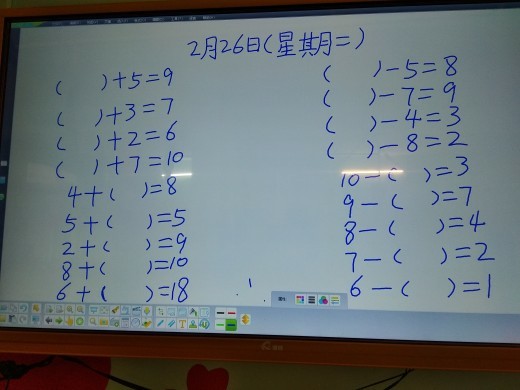 2月26日(星期二)
( )+5=9
( )+3=7
( )+2=6
( )+7=10
4+( )=8
5+( )=5
2+( )=9
8+( )=10
6+( )=18
( )-5=8
( )-7=9
( )-4=3
( )-8=2
10-( )=3
9-( )=7
8-( )=4
7-( )=2
6-( )=1